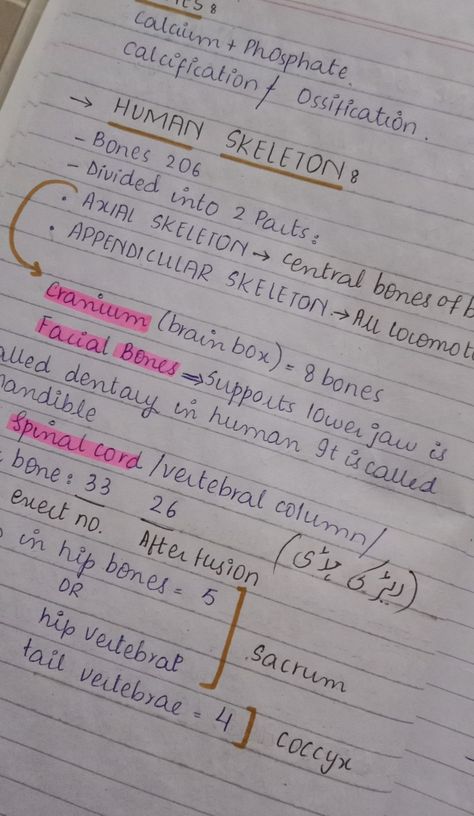 Calcium + Phosphate.
Calcification / Ossification.
→ HUMAN SKELETON 8
- Bones 206
- Divided into 2 Parts:
• AXIAL SKELETON → central bones of
• APPENDICULAR SKELETON → All
Cranium (brain box) = 8 bones
Facial Bones ⇒ Supports lower jaw is
dentary in human It is called
Spinal cord / vertebral column /
bone: 33 26
exect no. After fusion
in hip bones = 5
OR
hip vertebrat
Sacrum
tail vertebrae = 4
coccyx